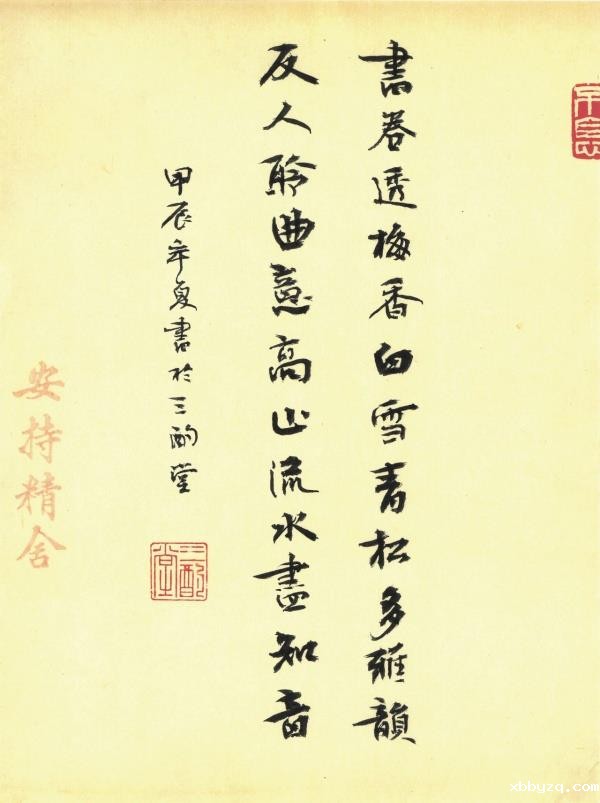 書卷透梅香白雪青松多雅韻
友人聆曲意高山流水盡知音
甲辰年夏書於三酌堂
三酌堂
安持精舍
xbbyzq.com